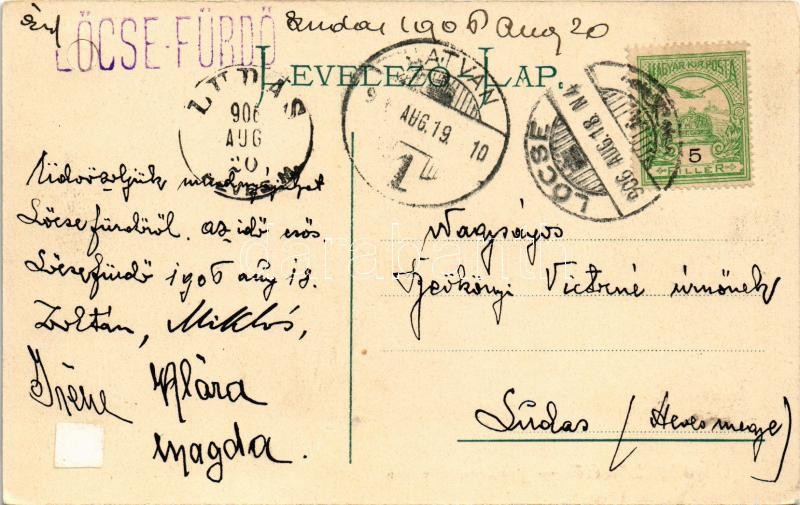 Érk Ludas 1906 aug 20
LŐCSE-FÜRDŐ
LEVELEZŐ-LAP.
LUDAS
906
AUG
20
HATVAN
AUG.19
10
1
LŐCSE
906 AUG.18 N4
MAGYAR KIR. POSTA
5
FILLÉR
Üdvözöljük
Lőcsefürdőről. az idő esős.
Lőcsefürdő 1906 aug 18.
Zoltán, Miklós,
Irène Klára
Magda.
Nagyságos
Victorné úrnőnek
Ludas (Hevesmegye)
darabanth